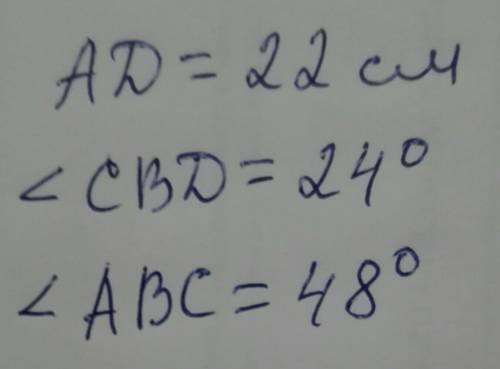 AD = 22 см
< CBD = 24°
< ABC = 48°